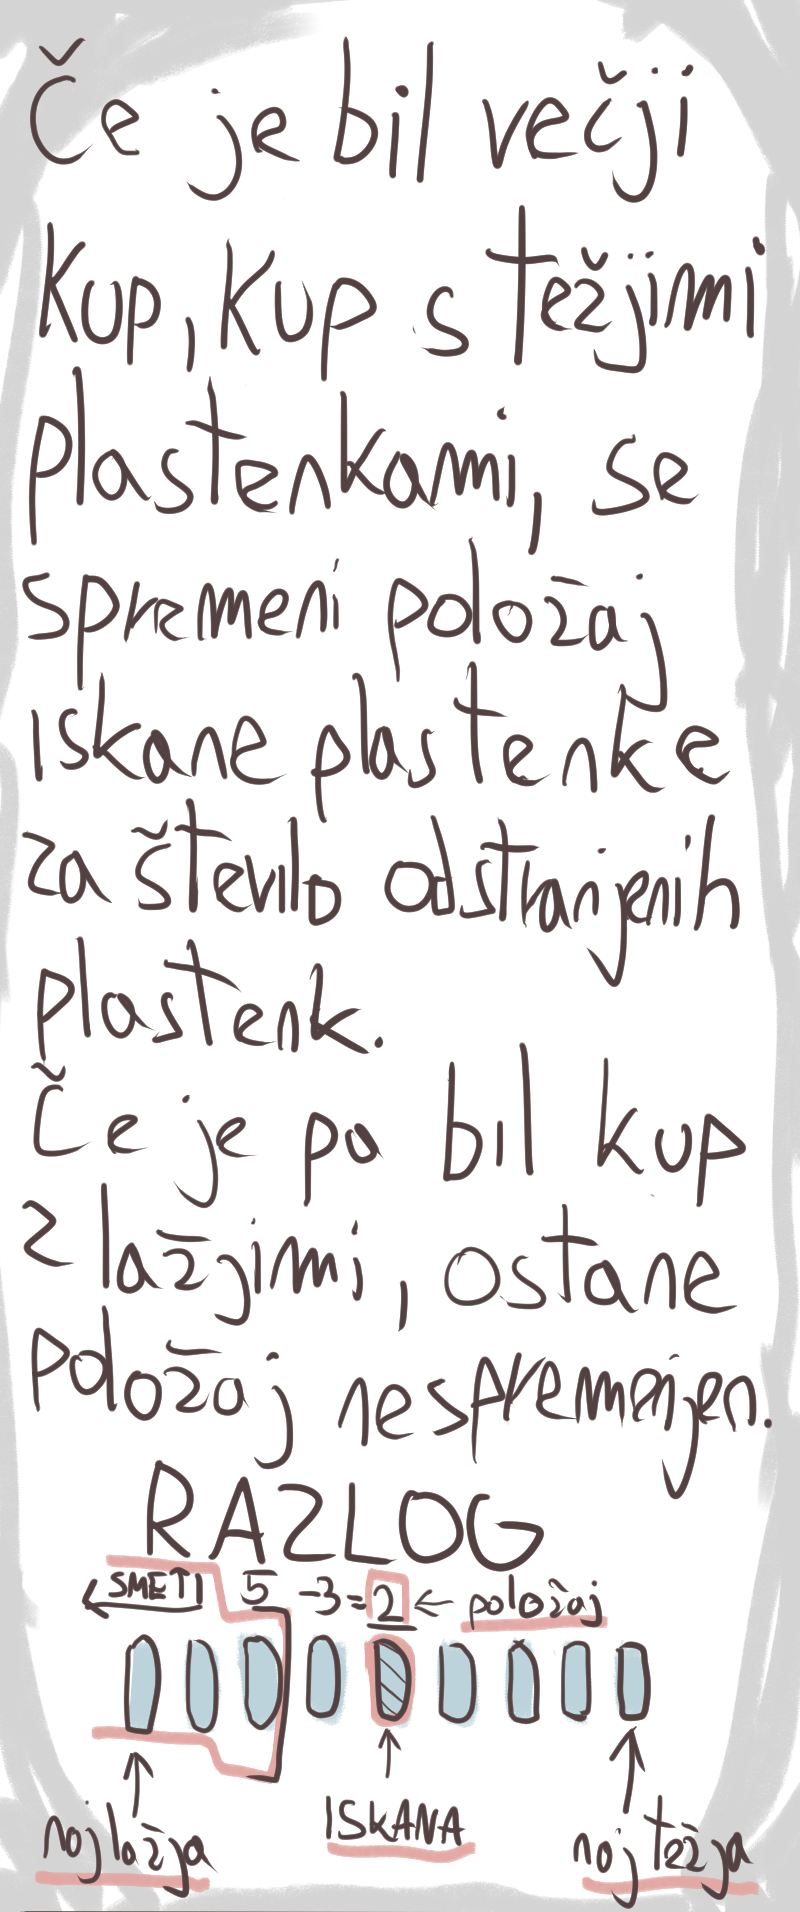 Če je bil večji
kup, kup s težjimi
plastenkami, se
spremeni položaj
iskane plastenke
za število odstranjenih
plastenk.
Če je pa bil kup
z lažjimi, ostane
položaj nespremenjen.
RAZLOG
← SMETI 5 -3=2 ← položaj
najlažja ISKANA najtežja